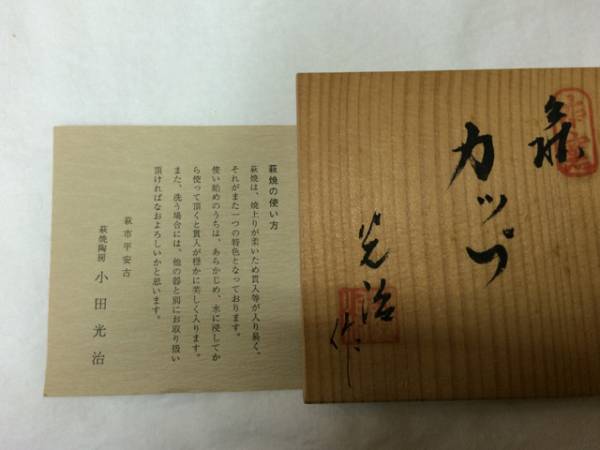 萩焼の使い方
萩焼は、焼上りが柔いため貫入等が入り易く、
それがまた一つの特色となっております。
使い始めのうちは、あらかじめ、水に浸してか
ら使って頂くと貫入が穏かに美しく入ります。
また、洗う場合には、他の器と別にお取り扱い
頂ければなおよろしいかと思います。
萩市平安古
萩焼陶房 小田光治
萩
カップ
光治
作